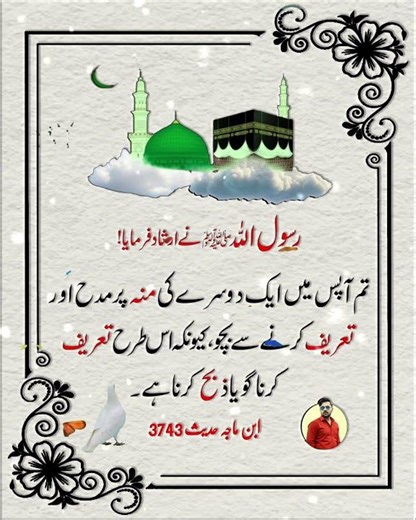 رسول اللہ ﷺ نے ارشاد فرمایا!
تم آپس میں ایک دوسرے کی منہ پر مدح اور
تعریف کرنے سے بچو، کیونکہ اس طرح تعریف
کرنا گویا ذبح کرنا ہے۔
ابن ماجہ حدیث 3743